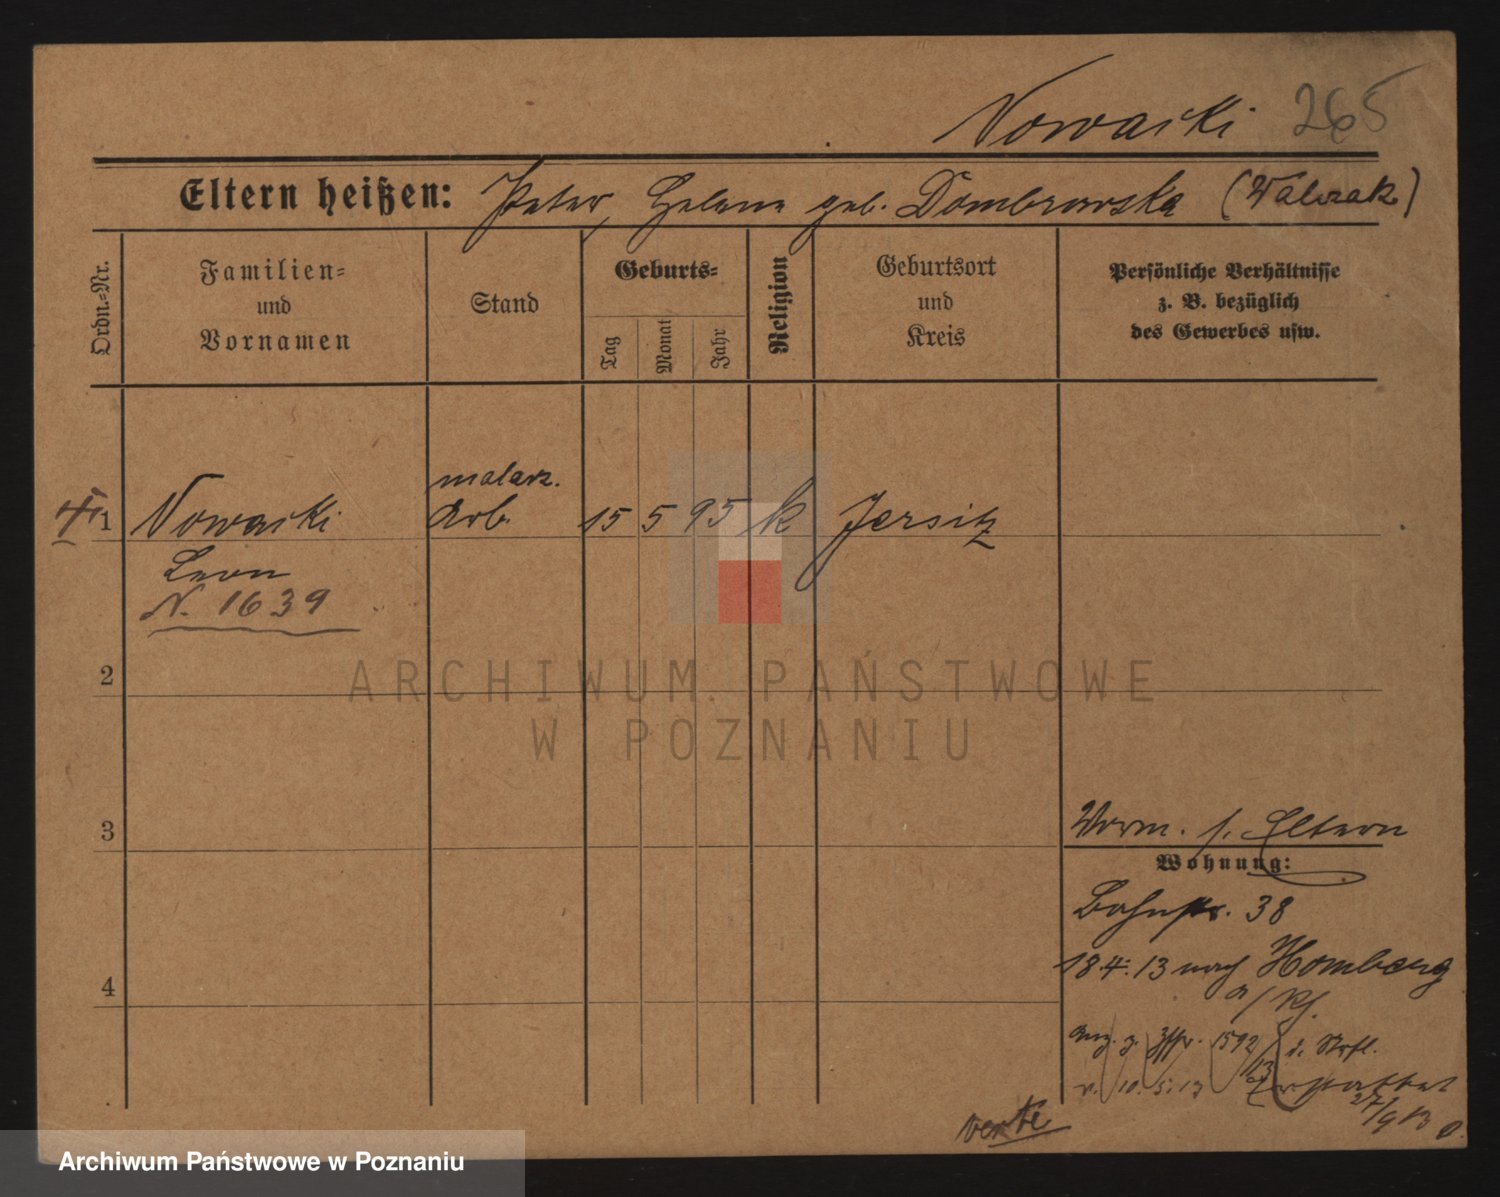 Nowacki 265
Eltern heißen: Peter, Helene geb. Dombrowska (Walczak)
Ordn.=Nr.
Familien=
und
Vornamen
Stand
Geburts=
Tag
Monat
Jahr
Religion
Geburtsort
und
Kreis
Persönliche Verhältnisse
z. B. bezüglich
des Gewerbes usw.
malarz.
1 Nowacki Arb. 15 5 95 k Jersitz
Leon
N. 1639
2
3
4
Vorm. s. Eltern
Wohnung:
Bahnstr. 38
18.4.13 nach Homberg
a/Rh.
1592
13
v. 10.5.13
27/9 13
verte
ARCHIWUM PAŃSTWOWE
W POZNANIU
Archiwum Państwowe w Poznaniu